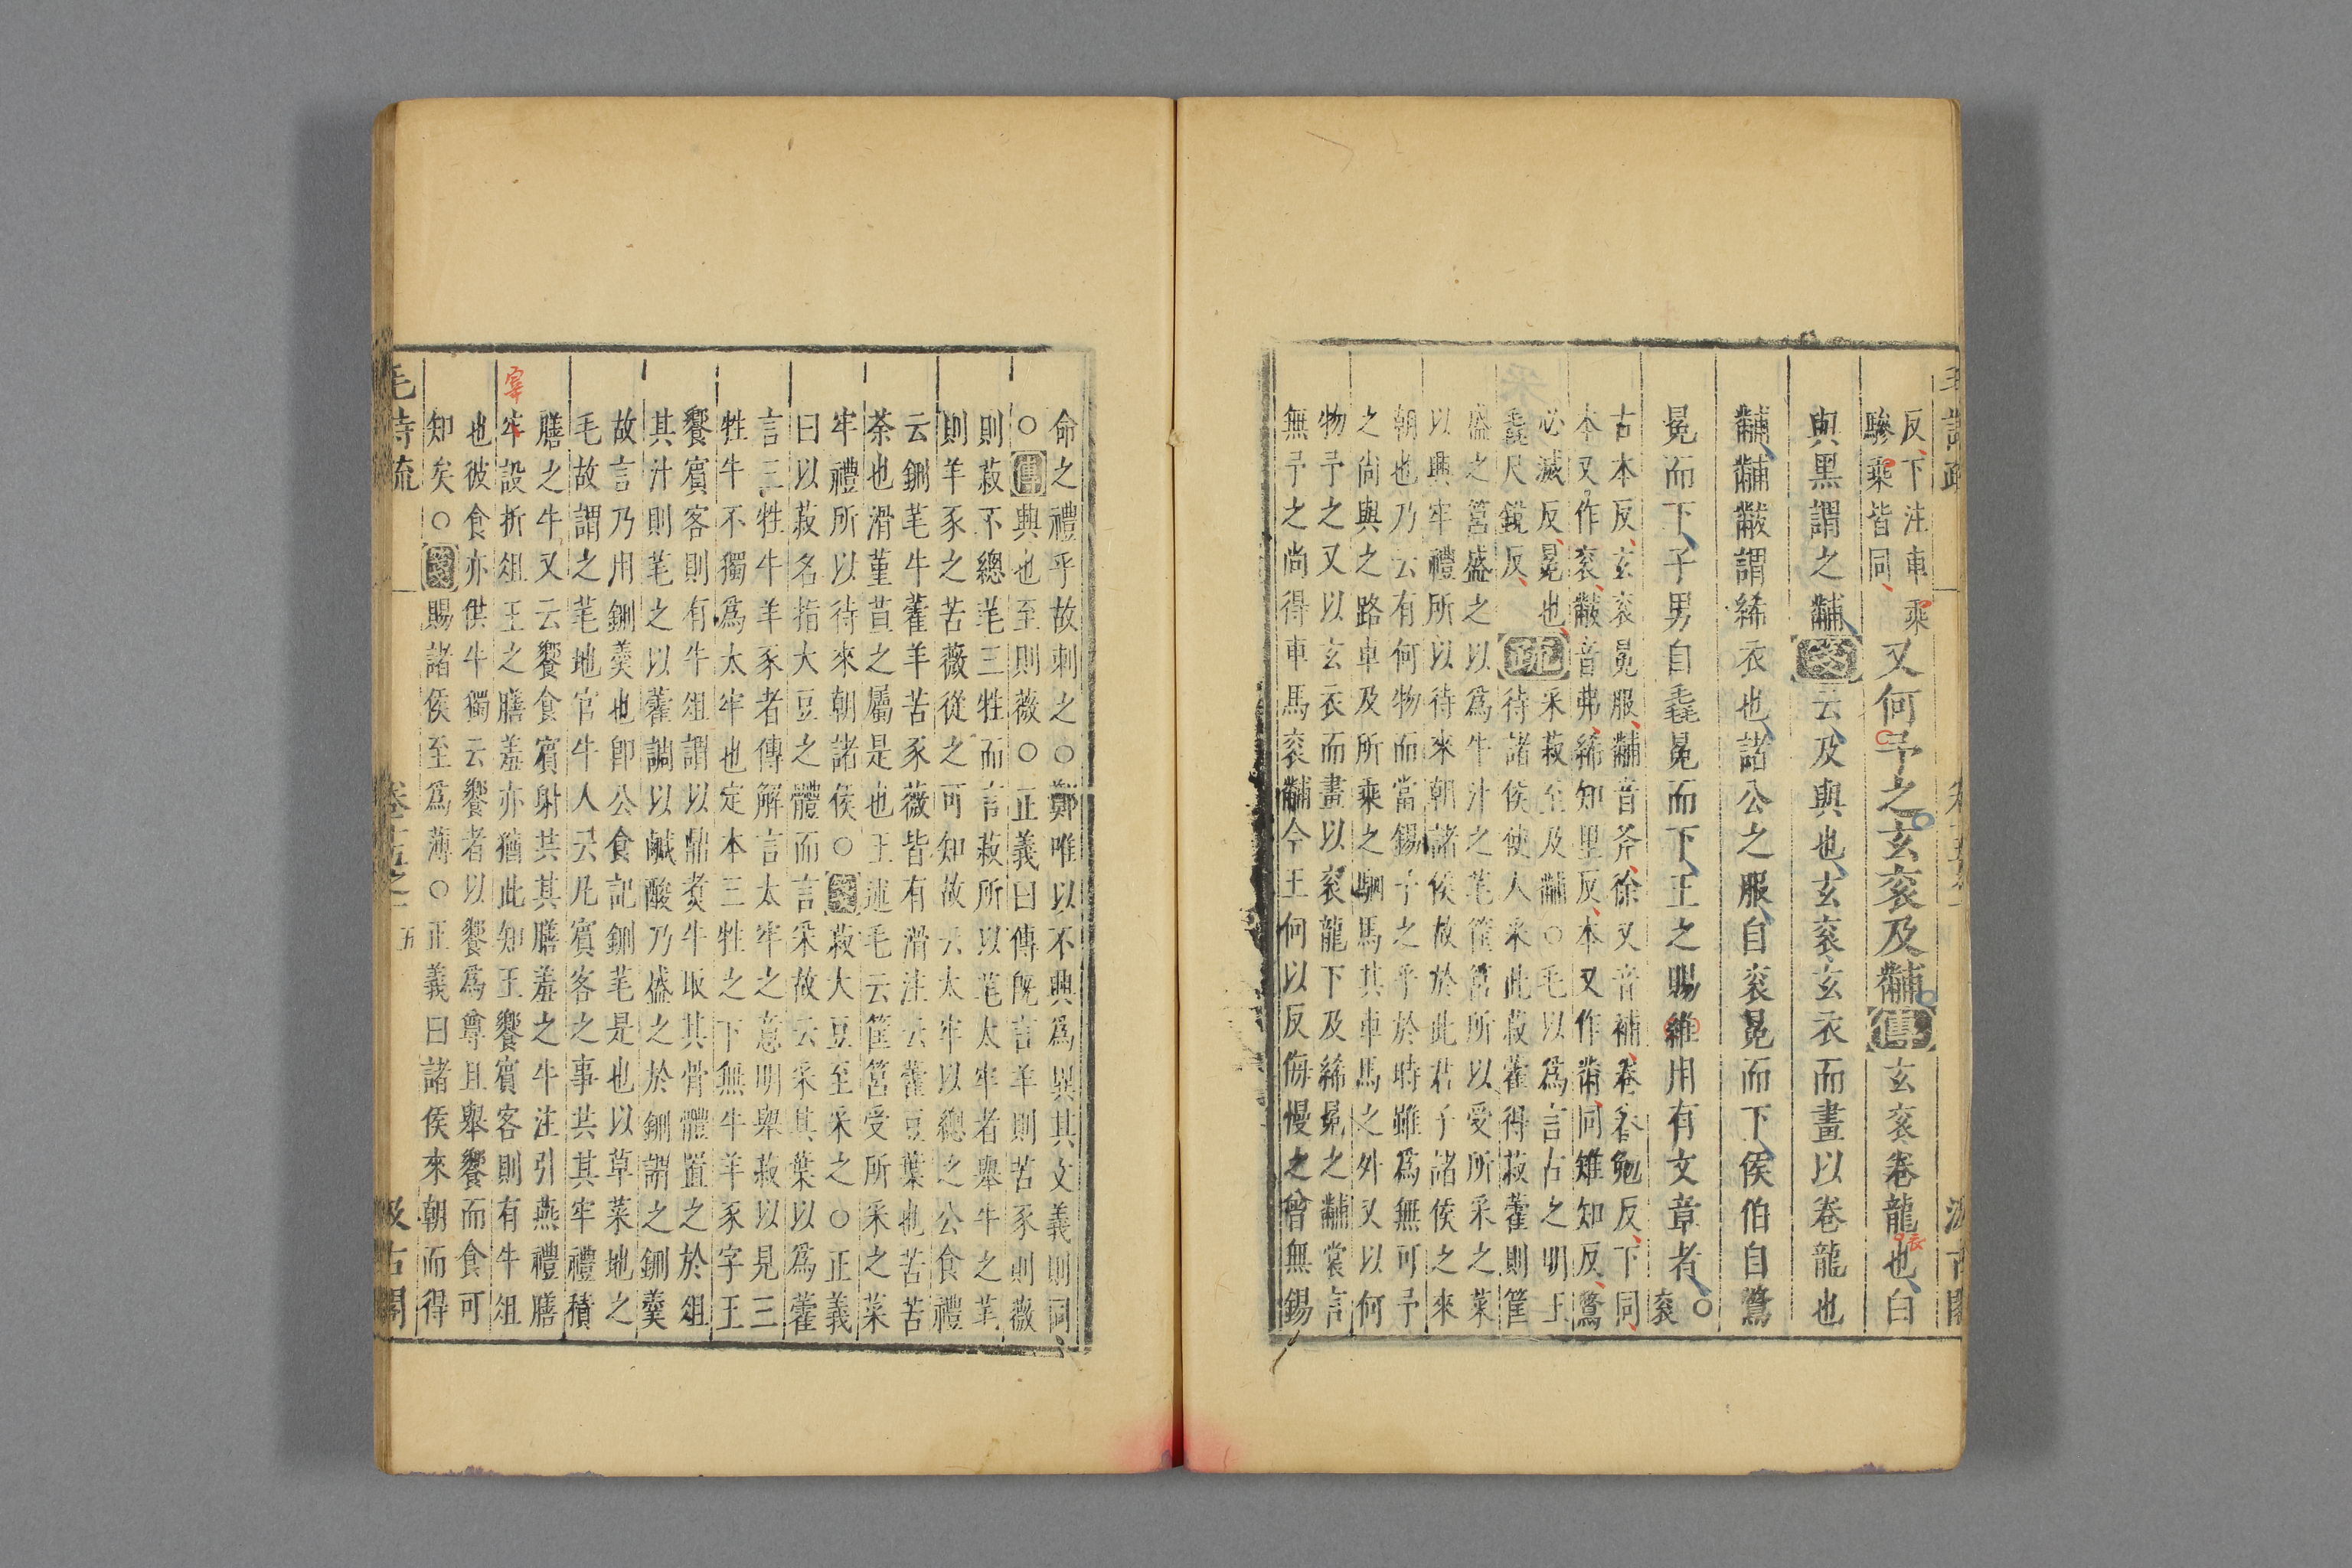 反下注車乘
驂乘皆同
又何予之玄衮及黼傳玄衮卷龍也白
衣
與黑謂之黼箋云及與也玄衮玄衣而畫以卷龍也
黼黼黻謂絺衣也諸公之服自衮冕而下侯伯自鷩
冕而下子男自毳冕而下王之賜維用有文章者○衮
古本反玄衮冕服黼音斧徐又音補卷眷勉反下同
本又作衮黻音弗絺知里反本又作黹同雉知反鷩
必滅反冕也
毳尺銳反
疏采菽至及黼○毛以爲言古之明王
待諸侯使人采此菽藿得菽藿則筐
盛之筥盛之以爲牛汁之芼筐筥所以受所采之菜
以興牢禮所以待來朝諸侯故於此君子諸侯之來
朝也乃云有何物而當錫予之乎於時雖爲無可予
之尚與之路車及所乘之駟馬其車馬之外又以何
物予之又以玄衣而畫以衮龍下及絺冕之黼裳言
無予之尚得車馬衮黼今王何以反侮慢之曾無錫
命之禮乎故刺之○鄭唯以不興爲異其文義則同
○傳興也至則薇○正義曰傳旣言羊則苦豕則薇
則菽不總芼三牲而言菽所以芼太牢者舉牛之芼
則羊豕之苦薇從之可知故云太牢以總之公食禮
云鉶芼牛藿羊苦豕薇皆有滑注云藿豆葉也苦苦
荼也滑菫荁之屬是也王述毛云筐筥受所采之菜
牢禮所以待來朝諸侯○箋菽大豆至采之○正義
曰以菽名指大豆之體而言采故云采其葉以爲藿
言三牲牛羊豕者傳解言太牢之意明舉菽以見三
牲牛不獨爲太牢也定本三牲之下無牛羊豕字王
饗賓客則有牛俎謂以鼎煑牛取其骨體置之於俎
其汁則芼之以藿調以鹹酸乃盛之於鉶謂之鉶羹
故言乃用鉶羹也卽公食記鉶芼是也以草菜地之
毛故謂之芼地官牛人云凡賓客之事共其牢禮積
膳之牛又云饗食賓射共其膳羞之牛注引燕禮膳
宰
牢設折俎王之膳羞亦猶此知王饗賓客則有牛俎
也彼食亦供牛獨云饗者以饗爲尊且舉饗而食可
知矣○箋賜諸侯至爲薄○正義曰諸侯來朝而得
毛詩疏 卷十五之一 五 汲古閣